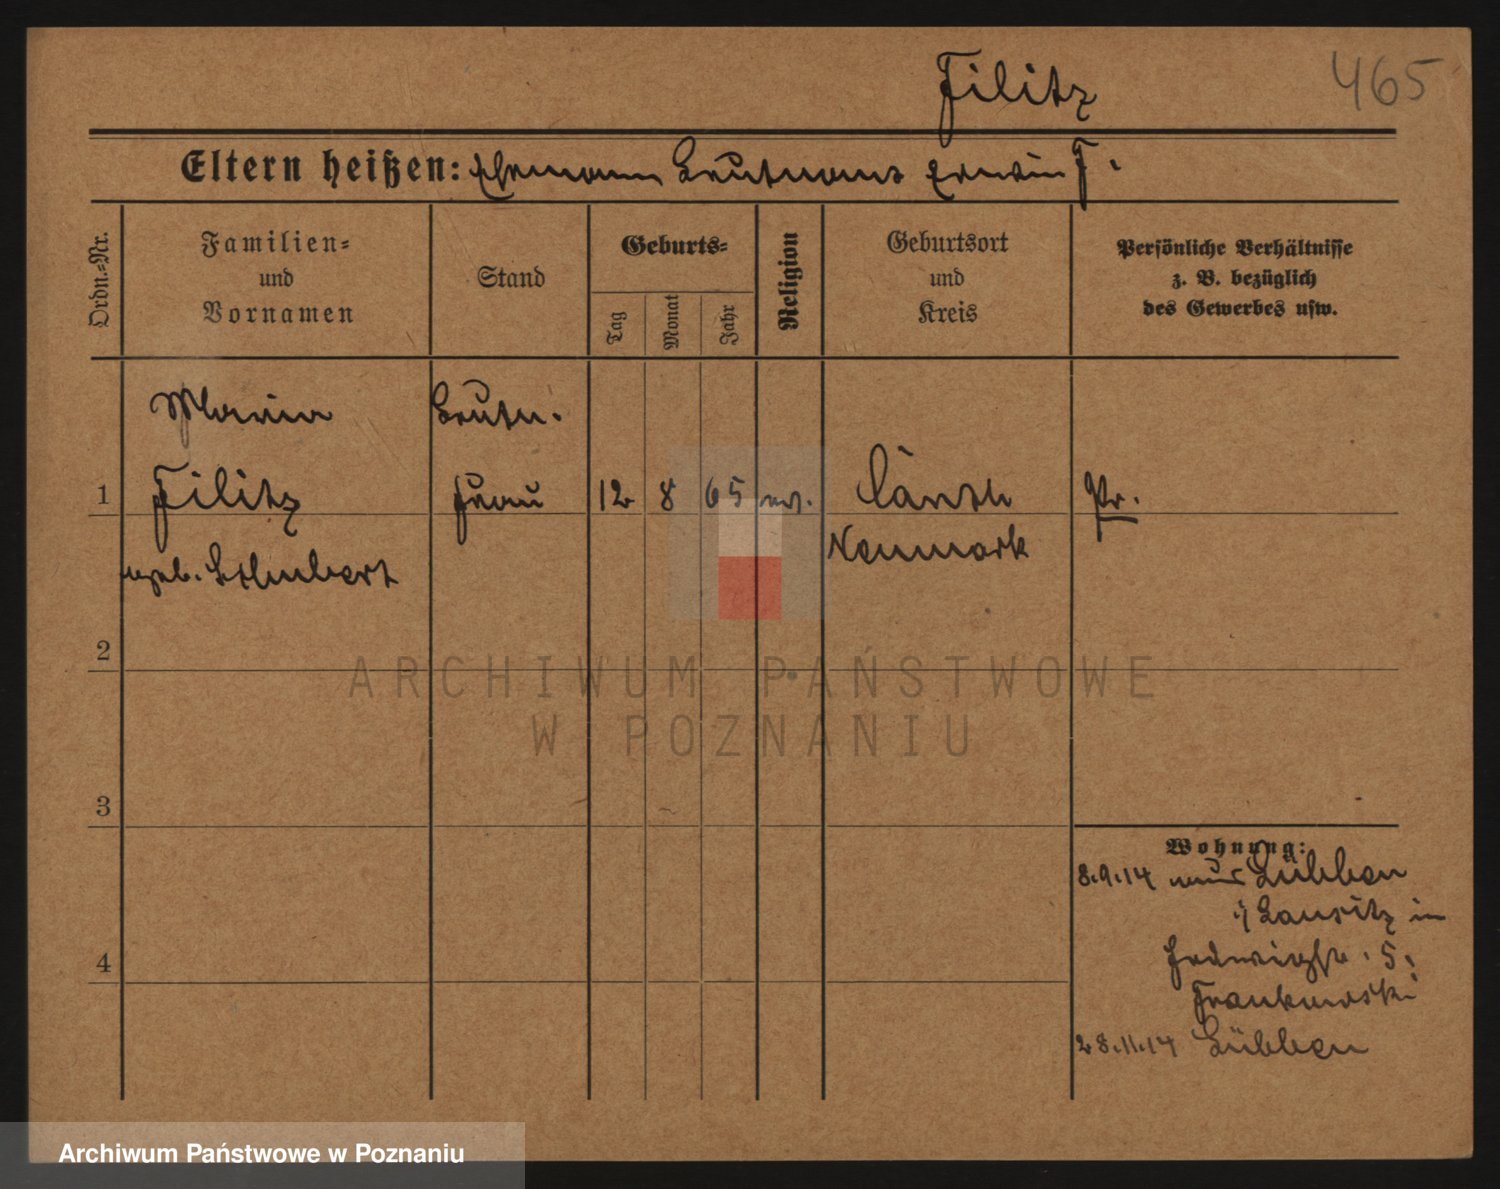 Filitz
465
Eltern heißen: Ehemann Leutnant Erwin F.
Ordn.-Nr.
Familien-
und
Vornamen
Stand
Geburts-
Tag
Monat
Jahr
Religion
Geburtsort
und
Kreis
Persönliche Verhältnisse
z. B. bezüglich
des Gewerbes usw.
Maria
Leutn.
1
Filitz
frau
12
8
65
ev.
Pr.
Neumark
geb. Schubert
2
ARCHIWUM PAŃSTWOWE
W POZNANIU
3
Wohnung:
8.9.14 Lübben
i/ Lausitz in
Hedwigstr. 5.
4
Frankowski
28.11.14 Lübben
Archiwum Państwowe w Poznaniu